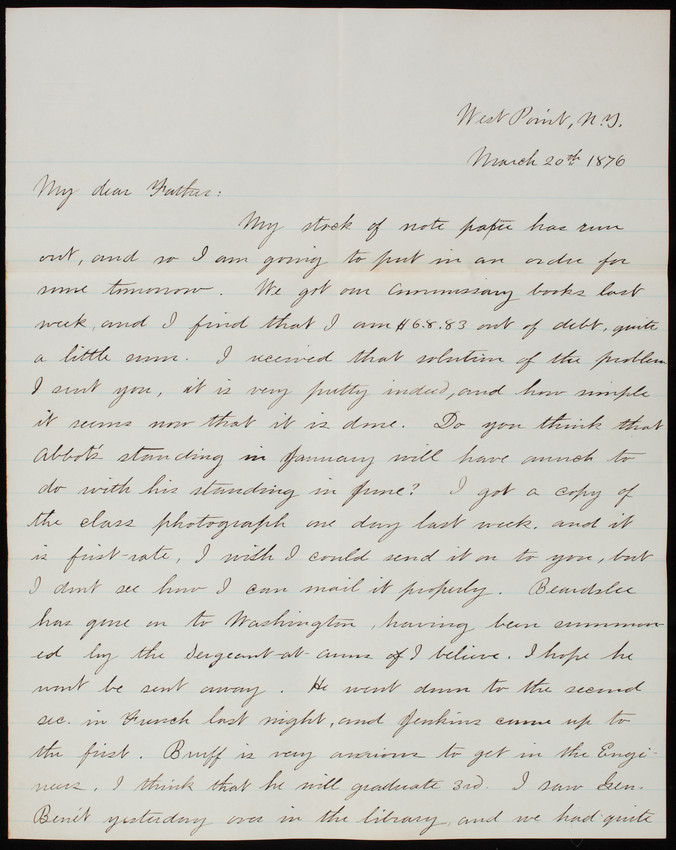 West Point, N.Y.
March 20th 1876
My dear Father:
My stock of note paper has run
out, and so I am going to put in an order for
some tomorrow. We got our commissary books last
week, and I find that I am $68.83 out of debt, quite
a little sum. I received that solution of the problem
I sent you, it is very pretty indeed, and how simple
it seems now that it is done. Do you think that
Abbot's standing in January will have much to
do with his standing in June? I got a copy of
the class photograph one day last week, and it
is first-rate, I wish I could send it on to you, but
I dont see how I can mail it properly. Beardslee
has gone on to Washington, having been summon-
ed by the Sergeant-at-arms I believe. I hope he
wont be sent away. He went down to the second
sec. in French last night, and Jenkins came up to
the first. Bruff is very anxious to get in the Engi-
neers. I think that he will graduate 3rd. I saw Gen.
Benét yesterday over in the library, and we had quite